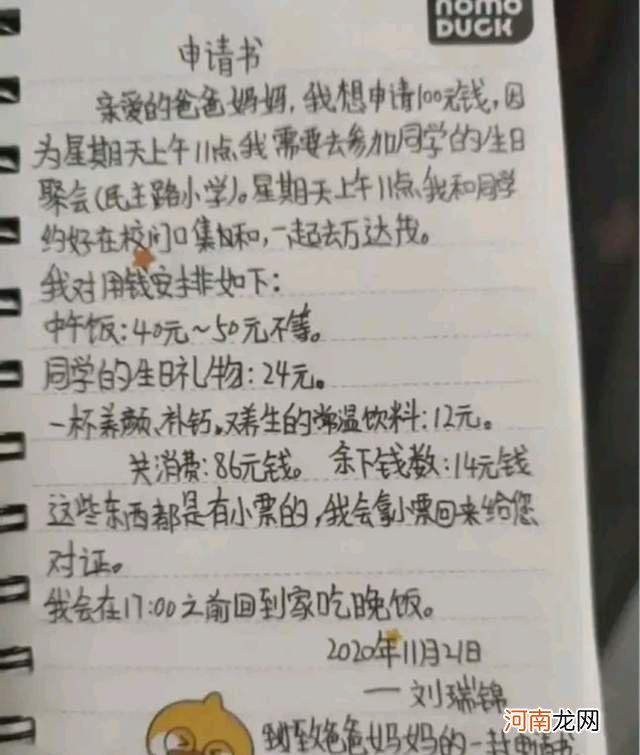 nomo
DUCK
申请书
亲爱的爸爸妈妈,我想申请100元钱,因
为星期天上午11点我需要去参加同学的生日
聚会(民主路小学)。星期天上午11点我和同学
约好在校门口集合和,一起去万达茂。
我对用钱安排如下:
中午饭:40元~50元不等。
同学的生日礼物:24元。
一杯养颜、补钙。又养生的常温饮料:12元。
共消费:86元钱。 余下钱数:14元钱
这些东西都是有小票的,我会拿小票回来给您
对证。
我会在17:00之前回到家吃晚饭。
2020年11月21日
——刘瑞锦
致爸爸妈妈的一封
河南龙网